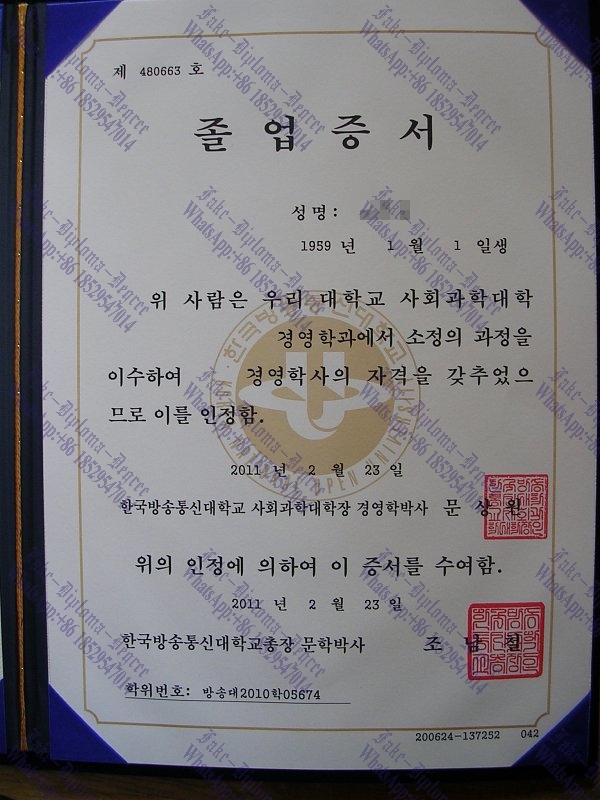 제 480663 호
졸업증서
성명:
1959 년 1 월 1 일생
위 사람은 우리 대학교 사회과학대학
경영학과에서 소정의 과정을
이수하여 경영학사의 자격을 갖추었으
므로 이를 인정함.
2011 년 2 월 23 일
한국방송통신대학교 사회과학대학장 경영학박사 문 상 원
위의 인정에 의하여 이 증서를 수여함.
2011 년 2 월 23 일
한국방송통신대학교총장 문학박사 조 남 철
학위번호: 방송대2010학05674
200624-137252 042
Fake-Diploma-Degree
WhatsApp:+86 18529547014